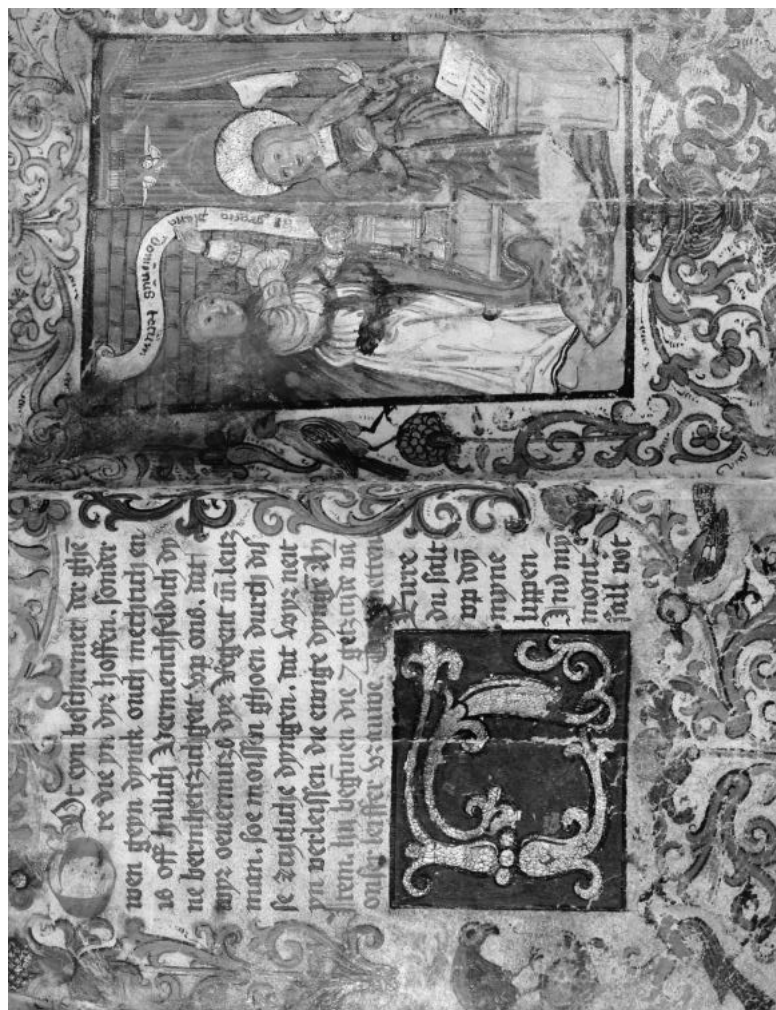 gracia plena
Dominus tecum
Ot eyn beschirmer der ghē
re die yn dyr hoffen. sonder
wen geyn dynck ouch mechtich en
is off hillich Vermenichfeldich dy
ne bermhertzicheit vp ons. dat
wyr ouermytz dyr Regent vn leitz
man. soe moissen ghoen durch dyß
se zeytliche dyngen. dat wyr neit
yn verleissen die ewige dyngē
sten. hy begynnen die 7 getzide vā
onser leiffer vrauwe metten
du salt
vp doy
myne
lippen
Ind my
mont
sall vort